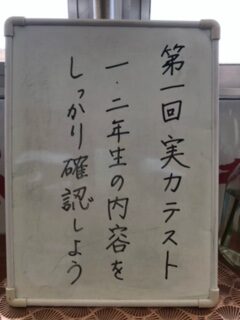 第一回実力テスト
一・二年生の内容を
しっかり確認しよう